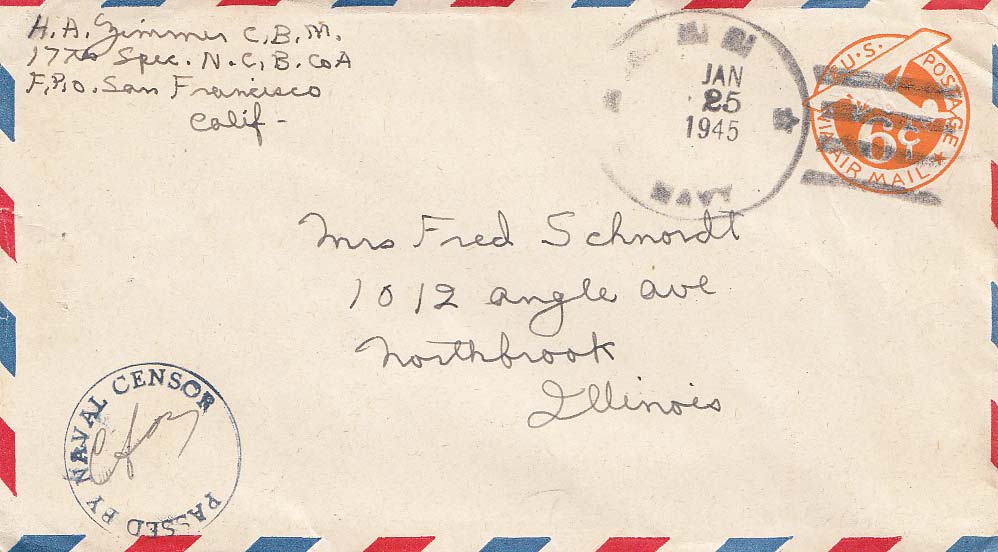 H. A. Zimmer C. B. M.
17th Spec. N. C. B. Co A
F. P. O. San Francisco
Calif -
JAN
25
1945
NAVY
U.S. POSTAGE
6¢
VIA AIR MAIL
Mrs Fred Schnordt
1012 angle ave
Northbrook
Illinois
PASSED BY NAVAL CENSOR